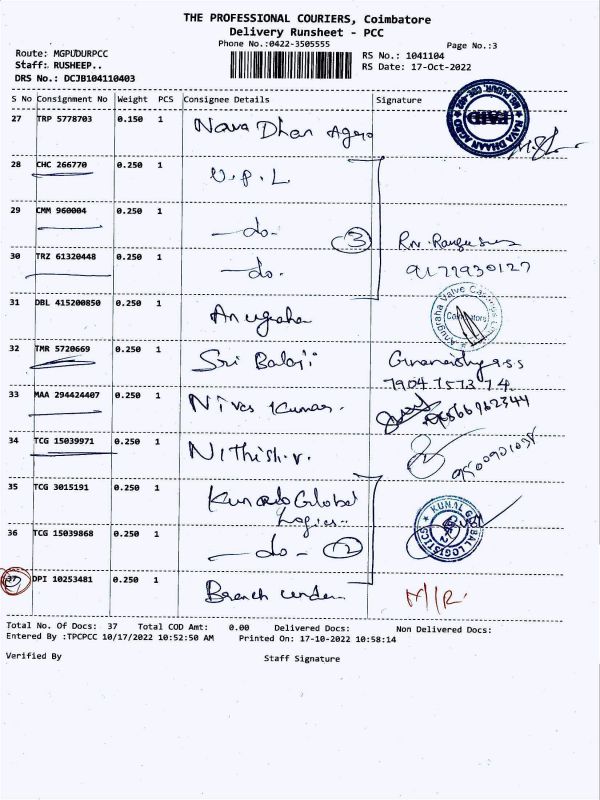 THE PROFESSIONAL COURIERS, Coimbatore
Delivery Runsheet - PCC
Phone No.:0422-3505555
Page No.:3
Route: MGPUDURPCC
RS No.: 1041104
Staff: RUSHEEP..
RS Date: 17-Oct-2022
DRS No.: DCJB104110403
S No Consignment No Weight PCS Consignee Details Signature
27 TRP 5778703 0.150 1 Nava Dhan Agro
NAVA DHAAN AGRO
PAID
28 CHC 266770 0.250 1 U.P.L
29 CMM 960004 0.250 1 -do- 3
30 TRZ 61320448 0.250 1 -do-
31 DBL 415200850 0.250 1 Anugraha
Anugraha Valve
Coimbatore
32 TMR 5720669 0.250 1 Sri Balaji
7904757374
33 MAA 294424407 0.250 1 Nives Kumar.
34 TCG 15039971 0.250 1 Nithish.v.
35 TCG 3015191 0.250 1 Global
KUNAL GLOBAL LOGISTICS
36 TCG 15039868 0.250 1 -do- 2
37 DPI 10253481 0.250 1 Branch M/R.
Total No. Of Docs: 37 Total COD Amt: 0.00 Delivered Docs: Non Delivered Docs:
Entered By :TPCPCC 10/17/2022 10:52:50 AM Printed On: 17-10-2022 10:58:14
Verified By Staff Signature